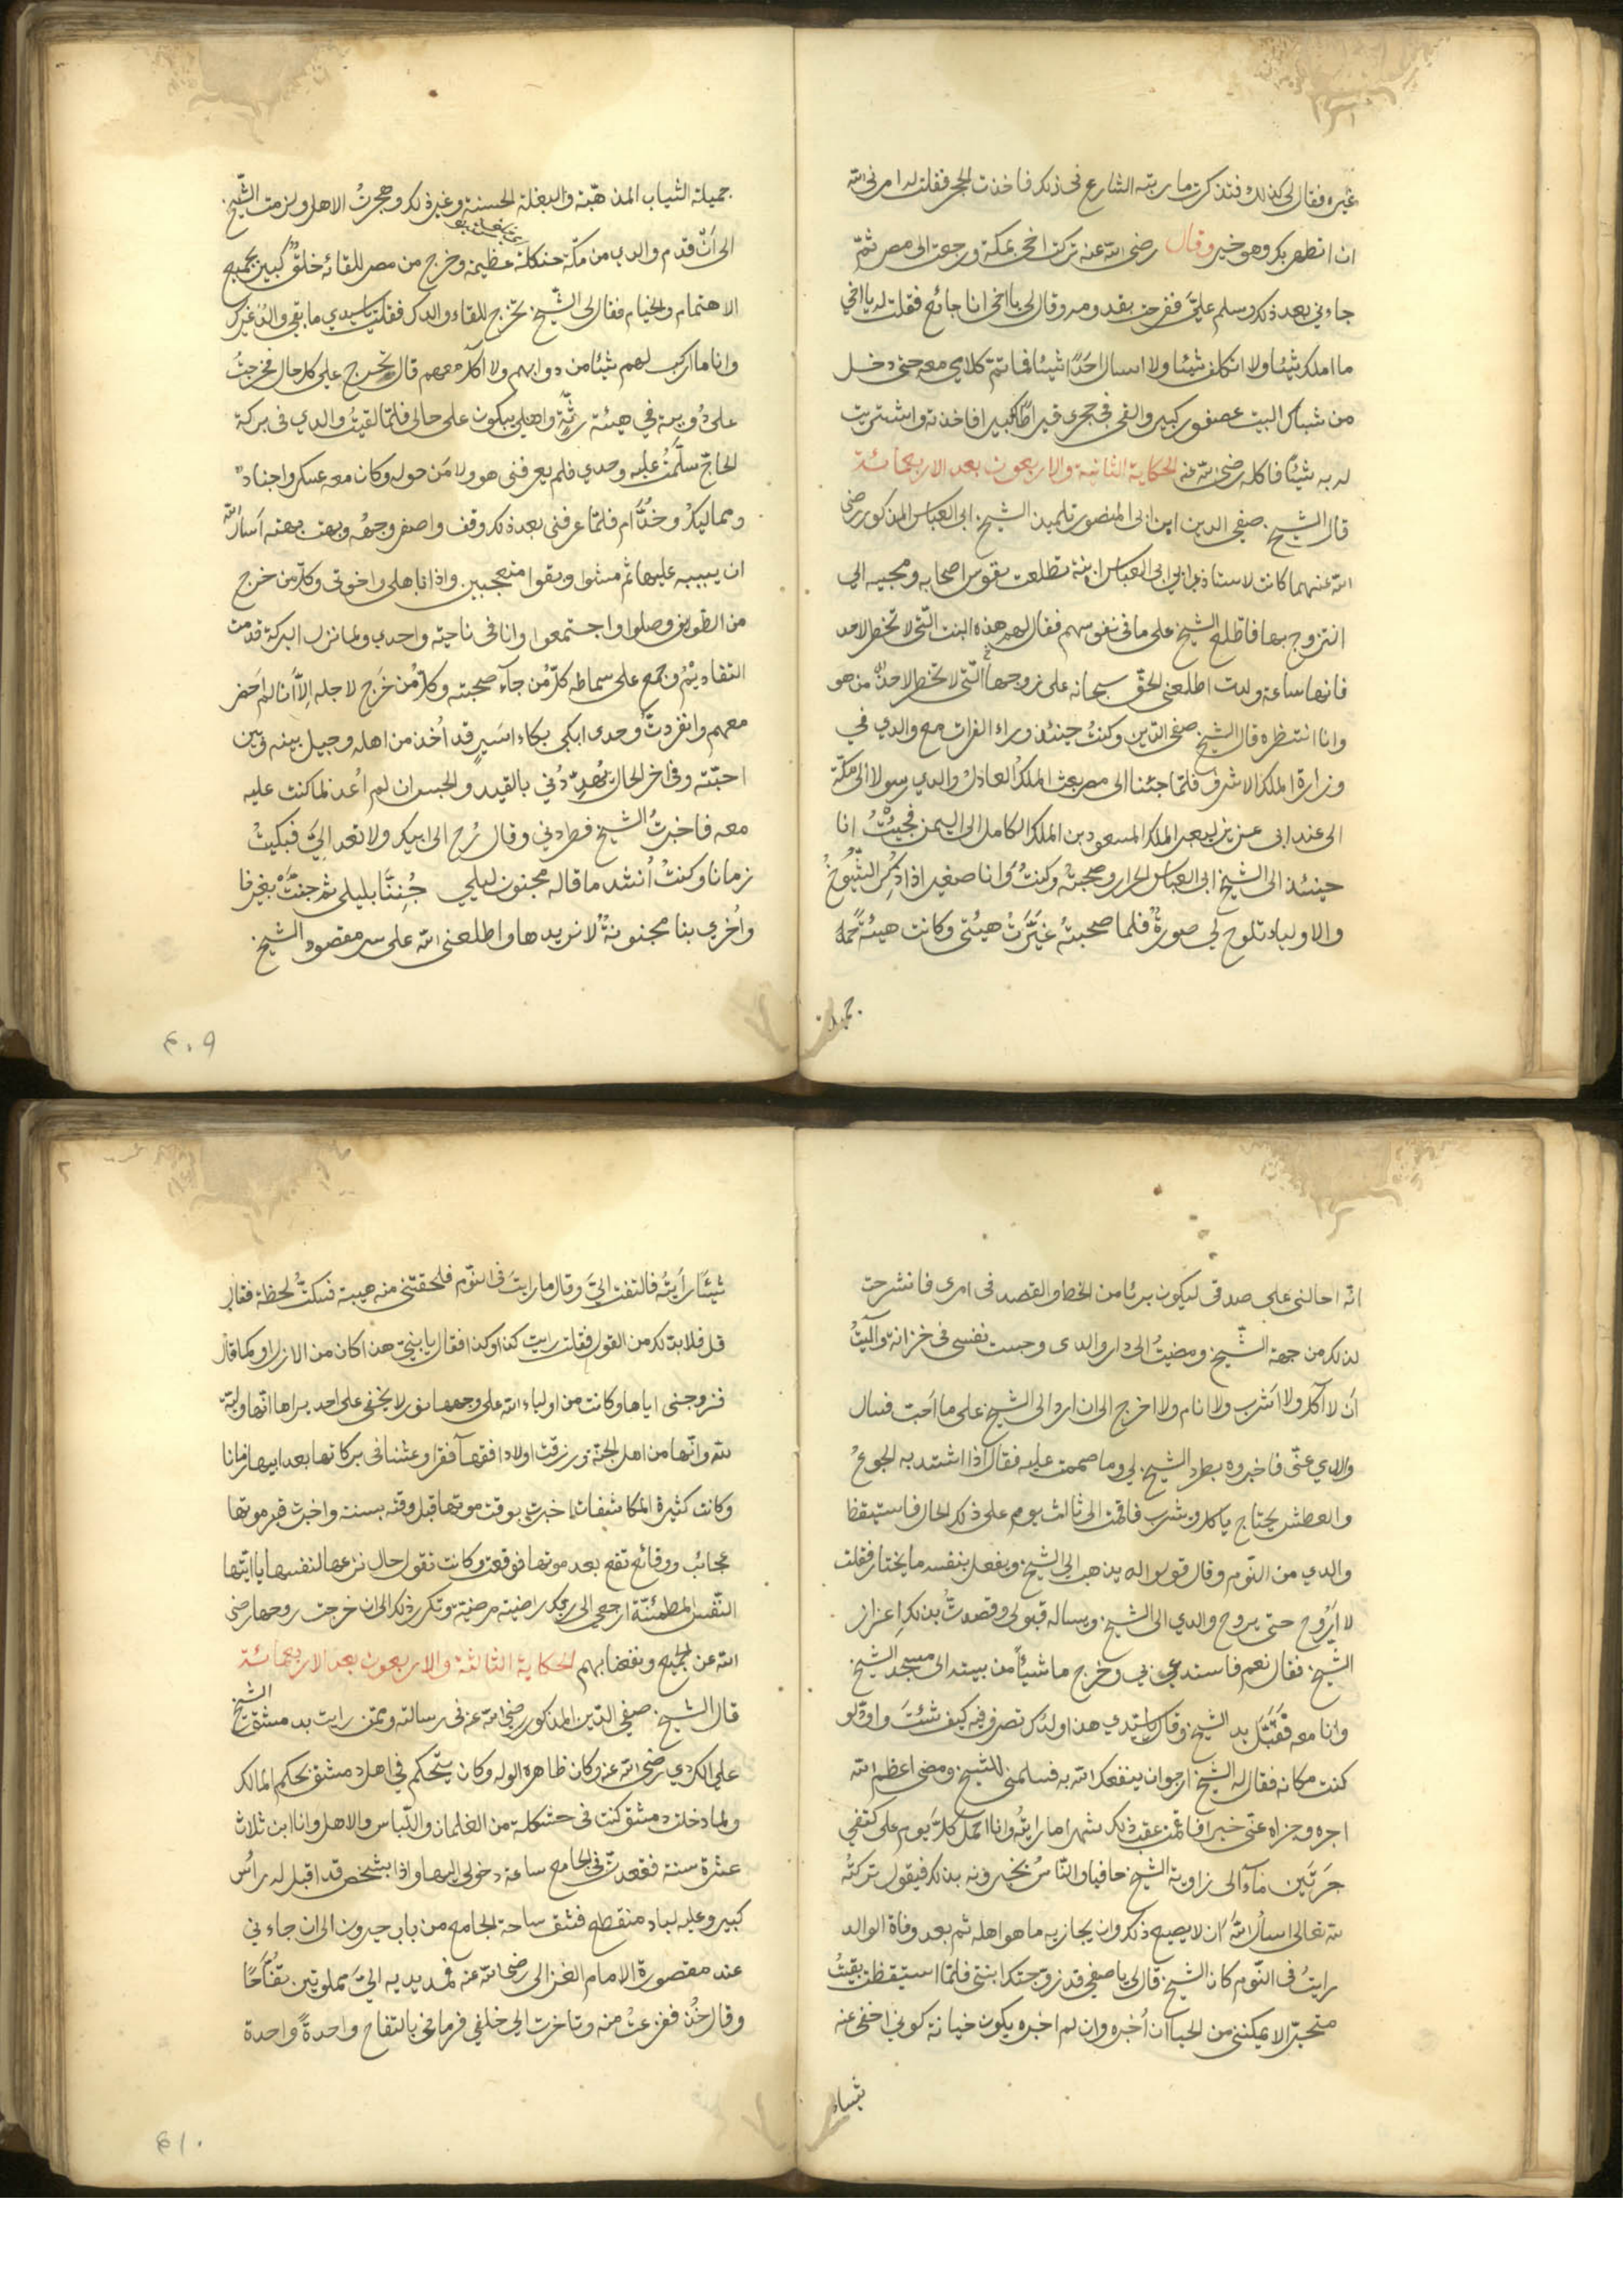 غيره فقال لي كذلك فتذكرت ما رتبه الشارع في ذلك فاخذت الحجر فقلت له امرني الله
ان اتطهر بك وهو خير وقال رضي الله عنه تركت اخي بمكة ورجعت الى مصر ثم
جاءني بعد ذلك وسلم عليّ ففرحت بقدومه وقال لي يا اخي انا جائع فقلت له يا اخي
ما املك شيئا ولا اتكلف شيئا ولا اسال احدًا شيئا فما تم كلامي معه حتى دخل
من شباك البيت عصفور كبير والقى في حجري قيراطًا كبيرا فاخذته واشتريت
له به شيئًا فاكله رضي الله عنه الحكاية الثانية والاربعون بعد الاربعمائة
قال الشيخ صفي الدين ابن ابي المنصور تلميذ الشيخ ابي العباس المذكور رضي
الله عنهما كانت لاستاذي ابي العباس ابنة تطلعت نفوس اصحابه ومحبيه الى
التزوج بها فاطلع الشيخ على ما في نفوسهم فقال لهم هذه البنت التي لا تخطر لاحد
فانها ساعة ولدت اطلعني الحق سبحانه على زوجها التي لا تخطر لاحد من هو
وانا انتظره قال الشيخ صفي الدين وكنتُ حينئذ وراء الفرات مع والدي في
وزارة الملك الاشرف فلمّا جئنا الى مصر بعث الملك العادلُ والدي رسولا الى مكة
الى عند ابي عزيز ليعبر الملك المسعود بن الملك الكامل الى اليمن فجئتُ انا
حينئذ الى الشيخ ابي العباس الحرار وصحبته وكنتُ وانا صغير اذا ذكر الشيوخُ
والاولياء تلوح لي صورةٌ فلما صحبته غيّرتْ هيئتي وكانت هيئة جملة
جميلة
جميلة الثياب المذهبة والبغلة الحسنة وغير ذلك وهجرتُ الاهل ولزمت الشيخ
الى انْ قدم والدي من مكّة حتكلة عظيمة وخرج من مصر للقائه خلقٌ كبير بجميع
الاهتمام والخيام فقال لي الشيخ تخرج للقاء والدك فقلت يا سيدي ما بقي والدٌ غيرك
وانا ما اركب لهم شيئا من دوابهم ولا آكل معهم قال تخرج على كل حال فخرجتُ
على دُويبة في هيئة رثّة واهلي يبكون على حالي فلمّا لقيتُ والدي في بركة
الحاج سلّمتُ عليه وحدي فلم يعرفني هو ولا مَن حوله وكان معه عسكر واجنادٌ
ومماليكُ وخدّام فلمّا عرفني بعد ذلك وقف واصفر وجهُه وبهت بهتة اسال الله
ان يثيبه عليها ثم مشوا وبقوا متعجبين واذا باهلي واخوتي وكل من خرج
من الطوائف وصلوا واجتمعوا وانا في ناحية وحدي ولما نزل البركة قدمت
التقاديمُ وجمع على سماطه كلّ من جآء صحبته وكلُّ من خرَج لاجله اِلاّ انا لم احضر
معهم وانفردتُ وحدي ابكي بكاء اسير قد اُخذ من اهله وحيل بينه وبين
احبّته وفي اخر الحال يُهدّدُني بالقيد والحبس ان لم اُعد لما كنت عليه
معه فاخبرتُ الشيخ فطردني وقال رُح الى ابيك ولا تعد اليَّ فبكيتُ
زمانا وكنتُ اُنشد ما قاله مجنون ليلى جُننّا بليلى ثم جنتْ بغيرنا
واُخرى بنا مجنونةٌ لا نريدها واطلعني الله على سر مقصود الشيخ
٤٠٩
انّه احالني على صدقي ليكون بريئا من الخط والقصد في امري فانشرحت
لذلك من جهة الشّيخ ومضيتُ الى دار والدي وحبست نفسي في خزانة وآليتُ
اَن لا آكل ولا اشرب ولا انام ولا اخرج الى ان ارد الى الشيخ على ما احب فسال
والدي عنّي فاخبروه بطرد الشيخ لي وما صممت عليه فقال اذا اشتد به الجوعُ
والعطش يحتاج ياكل ويشرب فاقمت الى ثالث يوم على ذلك الحال فاستيقظ
والدي من النّوم وقال قولوا له يذهب الى الشيخ ويفعل بنفسه ما يختار فقلت
لا اَرُوح حتى يروح والدي الى الشيخ ويساله قبولي وقصدتُ بذلك اعزاز
الشيخ فقال نعم فاستدعى بي وخرج ماشيًا من بيته الى مسجد الشيخ
وانا معه فقبّل يد الشيخ وقال يا سيّدي هذا ولدُك تصرف فيه كيف شئتَ واودّ لو
كنت مكانه فقال له الشيخ ارجو ان ينفعك الله به فسلمني للشيخ ومضى اعظم الله
اجره وجزاه عنّي خيرا فاقمت عقب ذلك شهرا ما رايتُه وانا احمل كلّ يوم على كتفي
جَرّتَين مآءً الى زاوية الشيخ حافيا والنّاسُ يخبرونه بذلك فيقول تركتُه
لله تعالى اسال اللهُ ان لا يضيع ذلك وان يجازيه ما هو اهله ثم بعد وفاة الوالد
رايتُ في النّوم كان الشيخ قال لي يا صفي قد زوجتك ابنتي فلمّا استيقظت بقيتُ
متحيّرا لا يمكنني من الحيا ان اُخبره وان لم اخبره يكون خيانة كوني اخفي عنه
شيئا
شيئًا رايتُه فالتفت اليّ وقال ما رايتَ في النّوم فلحقتني منه هيبة فسكتُّ لحظة فقال
قل فلا بد لك من القول فقلت رايت كذا وكذا فقال يا بنيّ هذا كان من الازل او كما قال
فزوجني اياها وكانت من اولياء الله على وجهها نور لا يخفى على احد يراها انّها ولية
لله وانّها من اهل الجنة ورزقت اولادا فقهآ فقرا وعشنا في بركاتها بعد ابيها زمانا
وكانت كثيرة المكاشفات اخبرت بوقت موتها قبل وقته بسنة واخبرت قبر موتها
بعجائب ووقائع تقع بعد موتها فوقعت وكانت تقول حال نزعها لنفسها يا ايتها
النّفس المطمئنّة ارجعي الى ربك راضية مرضية وتكرر ذلك الى ان خرجت روحها رضي
الله عن الجميع ونفعنا بهم الحكاية الثالثة والاربعون بعد الاربعمائة
قال الشيخ صفي الدّين المذكور رضي الله عنه في رسالته وممّن رايت بدمشق الشيخ
علي الكردي رضي الله عنه وكان ظاهره الوله وكان يتحكم في اهل دمشق بحكم المالك
ولما دخلت دمشق كنت في حتكلة من الغلمان واللّباس والاهل وانا ابن ثلاث
عشرة سنة فقعدتُ في الجامع ساعة دخولي اليها واذا بشخص قد اقبل له راس
كبير وعليه لباد منقطع فشق ساحة الجامع من باب جيرون الى ان جاءني
عند مقصورة الامام الغزالي رضي الله عنه فمد يديه اليَّ مملوتين تفّاحًا
وقال خُذ ففزعتُ منه وتاخرت الى خلفي فرماني بالتفاح واحدةً واحدة
٤١٠